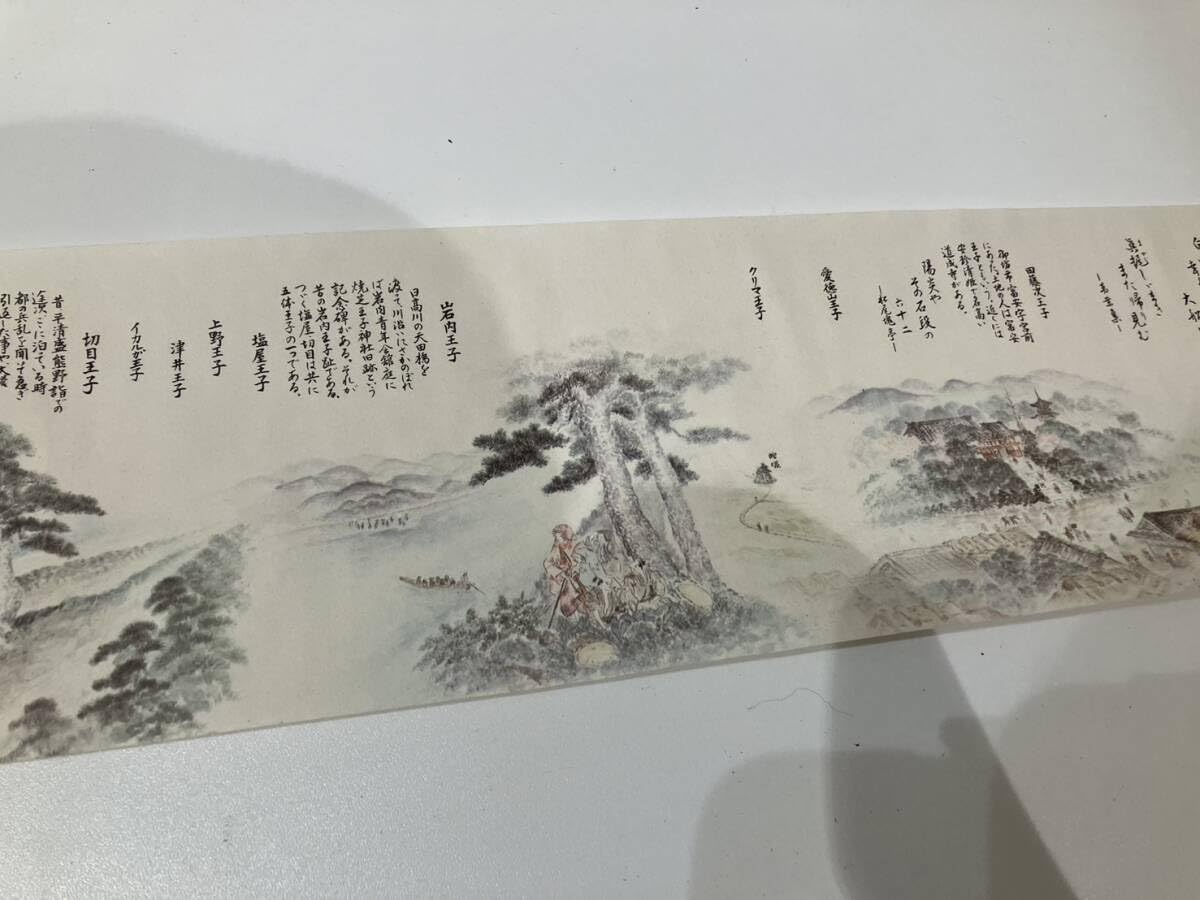 また帰り見む
田藤次王子
御坊市富安字宮前
にあった。土地の人は富安
王子ともいう。近くには
安珍清姫で名高い
道成寺がある。
陽炎や
その石段の
六十二
愛徳山王子
クリマ王子
蛇塚
岩内王子
日高川の天田橋を
渡って川沿いにさかのぼれ
ば岩内青年会館庭に
焼芝王子神社旧跡という
記念碑がある。それが
昔の岩内王子趾である。
つづく塩屋、切目は共に
五体王子の一つである。
塩屋王子
上野王子
津井王子
イカルガ王子
切目王子
昔平清盛熊野詣での
途次ここに泊っている時
都の兵乱を聞き急ぎ
引返した事や大塔